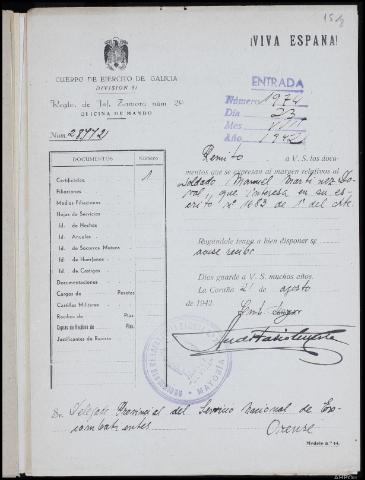 ¡VIVA ESPAÑA!
CUERPO DE EJERCITO DE GALICIA
DIVISION 81
Regto. de Inf. Zamora núm. 29
OFICINA DE MANDO
Núm. 28772
ENTRADA
Número 1974
Día 23
Mes VIII
Año 1942
DOCUMENTOS Número
Certificados 1
Filiaciones
Medias Filiaciones
Hojas de Servicios
Id. de Hechos
Id. Anuales
Id. de Socorros Mutuos
Id. de Huérfanos
Id. de Castigos
Documentaciones
Cargos de Pesetas
Cartillas Militares
Recibos de Ptas.
Copias de Recibos de Ptas.
Justificantes de Revista
Remito a V. S. los docu-
mentos que se expresan al margen relativos al
soldado Manuel Martínez
que interesa en su es-
crito nº 1683 de 1º del cte.
Rogándole tenga a bien disponer se
acuse recibo
Dios guarde a V. S. muchos años.
La Coruña 21 de agosto
de 1942
MAYORIA
Sr. Delegado Provincial del Servicio Nacional de Ex-
combatientes Orense
Modelo n.º 14.